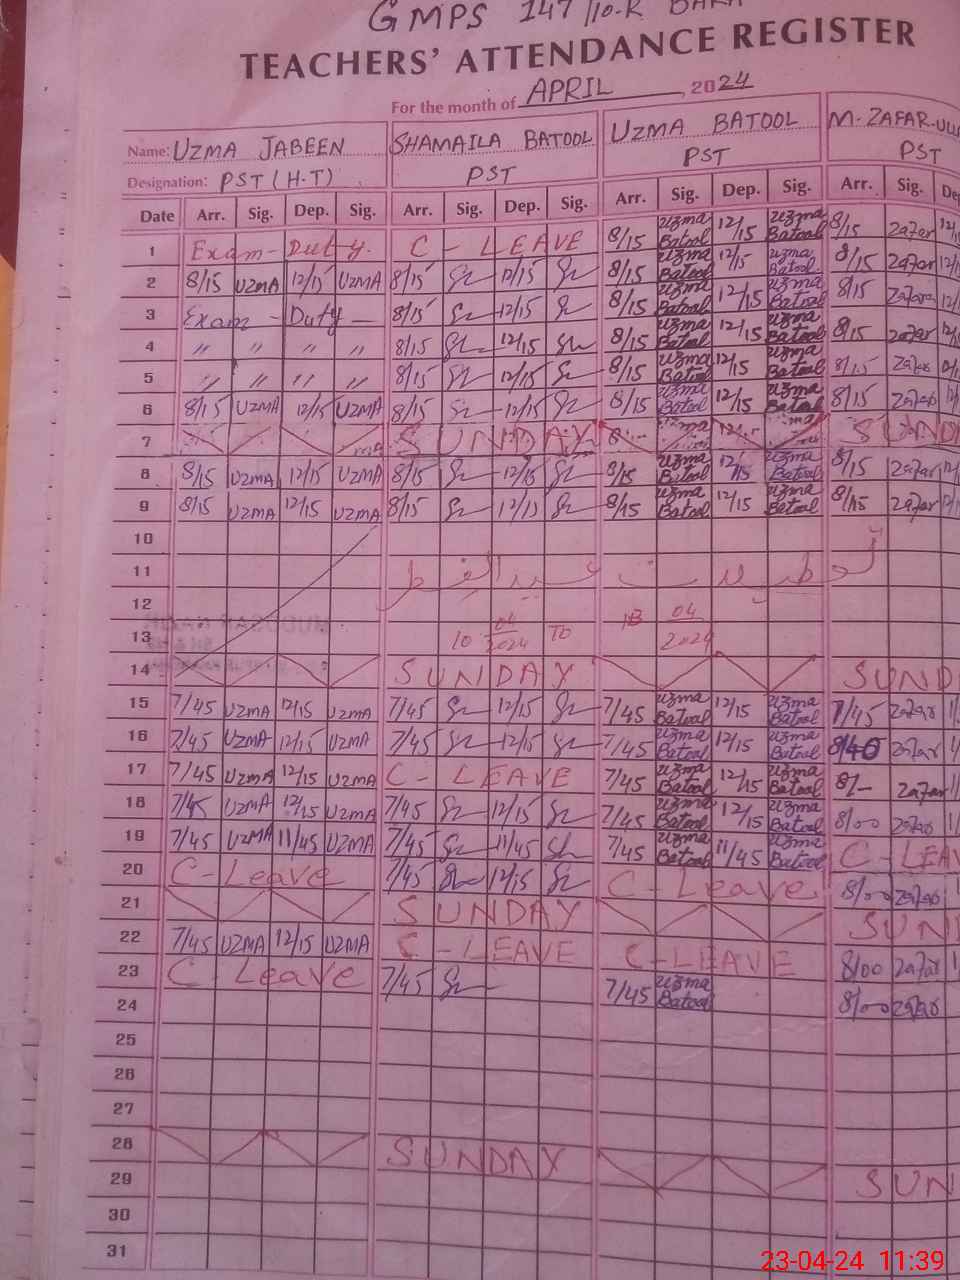 GMPS 147/10-R
TEACHERS' ATTENDANCE REGISTER
For the month of APRIL, 2024
Name: UZMA JABEEN SHAMAILA BATOOL UZMA BATOOL M. ZAFAR-ULL
Designation: PST (H.T) PST PST PST
Date Arr. Sig. Dep. Sig. Arr. Sig. Dep. Sig. Arr. Sig. Dep. Sig. Arr. Sig. De
1 Exam - Duty. C - LEAVE 8/15 Uzma Batool 12/15 Uzma Batool 8/15 Zafar
2 8/15 UZMA 12/15 UZMA 8/15 12/15 8/15 Uzma Batool 12/15 Uzma Batool 8/15 Zafar
3 Exam - Duty - 8/15 12/15 8/15 Uzma Batool 12/15 Uzma Batool 8/15 Zafar
4 〃 〃 〃 〃 8/15 12/15 8/15 Uzma Batool 12/15 Uzma Batool 8/15 Zafar
5 〃 〃 〃 〃 8/15 12/15 8/15 Uzma Batool 12/15 Uzma Batool 8/15 Zafar
6 8/15 UZMA 12/15 UZMA 8/15 12/15 8/15 Uzma Batool 12/15 Uzma Batool 8/15 Zafar
7 SUNDAY SUND
8 8/15 UZMA 12/15 UZMA 8/15 12/15 8/15 Uzma Batool 12/15 Uzma Batool 8/15 Zafar
9 8/15 UZMA 12/15 UZMA 8/15 12/15 8/15 Uzma Batool 12/15 Uzma Batool 8/15 Zafar
10
11 تعطیلات عید الفطر
12
13 10 04/2024 TO 13 04/2024
14 SUNDAY SUND
15 7/45 UZMA 12/15 UZMA 7/45 12/15 7/45 Uzma Batool 12/15 Uzma Batool 7/45 Zafar
16 7/45 UZMA 12/15 UZMA 7/45 12/15 7/45 Uzma Batool 12/15 Uzma Batool Zafar
17 7/45 UZMA 12/15 UZMA C - LEAVE 7/45 Uzma Batool 12/15 Uzma Batool 8/- Zafar
18 7/45 UZMA 12/15 UZMA 7/45 12/15 7/45 Uzma Batool 12/15 Uzma Batool 8/00 Zafar
19 7/45 UZMA 11/45 UZMA 7/45 11/45 7/45 Uzma Batool 11/45 Uzma Batool C - LEAV
20 C - Leave 7/45 12/15 C - Leave 8/00 Zafar
21 SUNDAY SUN
22 7/45 UZMA 12/15 UZMA C - LEAVE C - LEAVE 8/00 Zafar
23 C - Leave 7/45 7/45 Uzma Batool 8/00 Zafar
24
25
26
27
28 SUNDAY SUN
29
30
31
23-04-24 11:39